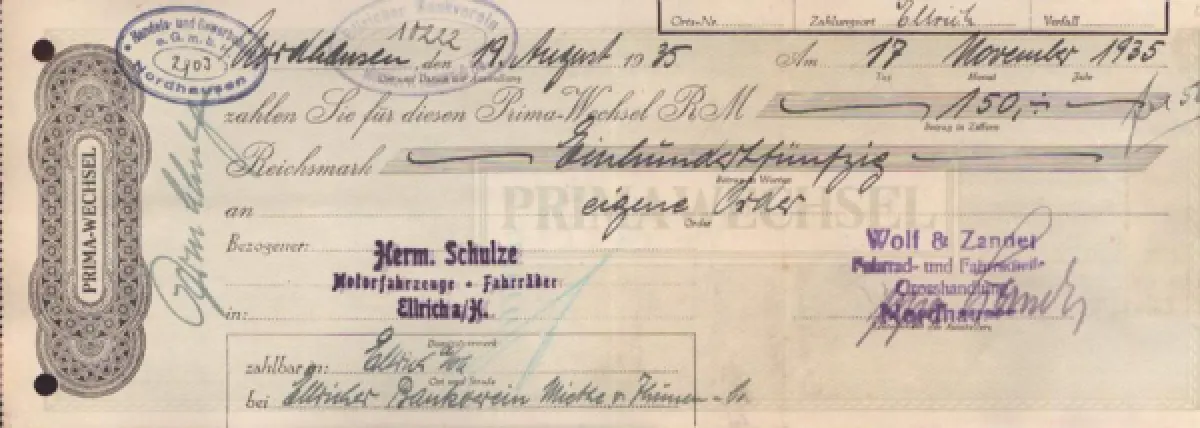 Orts-Nr. Zahlungsort Ellrich Verfall
Handels- und Gewerbe
e.G.m.b.H
2903
Nordhausen
Ellricher Bankverein
10222
Nordhausen, den 19. August 1935 Am 17 November 1935
Ort und Tag der Ausstellung Tag Monat Jahr
zahlen Sie für diesen Prima-Wechsel RM 150,-
Betrag in Ziffern
Reichsmark Einhundertfünfzig
Betrag in Worten
PRIMA-WECHSEL
an eigene Order
Order
PRIMA-WECHSEL
Bezogener: Herm. Schulze
Motorfahrzeuge - Fahrräder
in: Ellrich a/H.
Wolf & Zander
Fahrrad- und
Grosshandlung
Nordhausen
Domizilvermerk
zahlbar in: Ellrich
Ort und Straße
bei Ellricher Bankverein